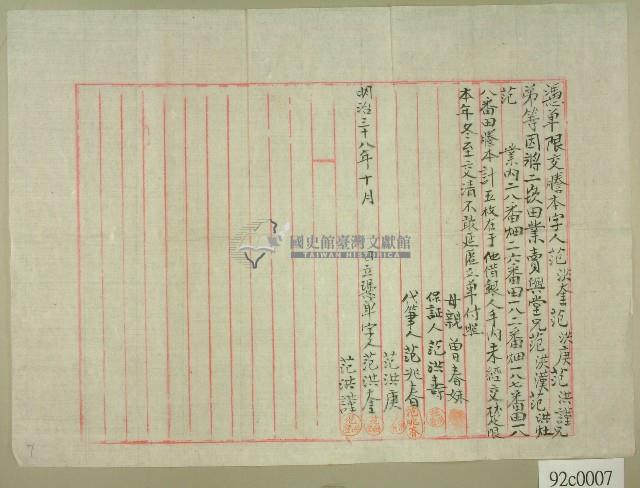 憑單限交謄本字人范洪奎范洪庚范洪謹兄
弟等因將二崁田業賣與堂兄范洪漢范洪灶
范 業內二八番畑二六番田一八二番畑一八七番田一八
八番田謄本計五枚在于他借銀人手內未經交
本年冬至交清不敢延塞立單付照
母親 曾春妹
保証人 范洪壽
代筆人 范兆春
范洪庚
立憑單字人 范洪奎
范洪謹
明治三十八年十月
國史館臺灣文獻館
TAIWAN HISTORICA
7
92c0007